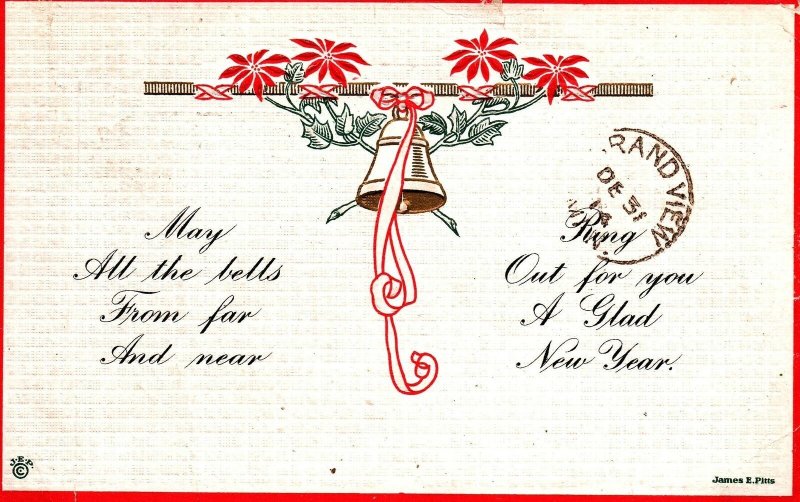 May
All the bells
From far
And near
Ring
Out for you
A Glad
New Year.
RAND VIEW
DE 31
J.E.P.
©
James E. Pitts